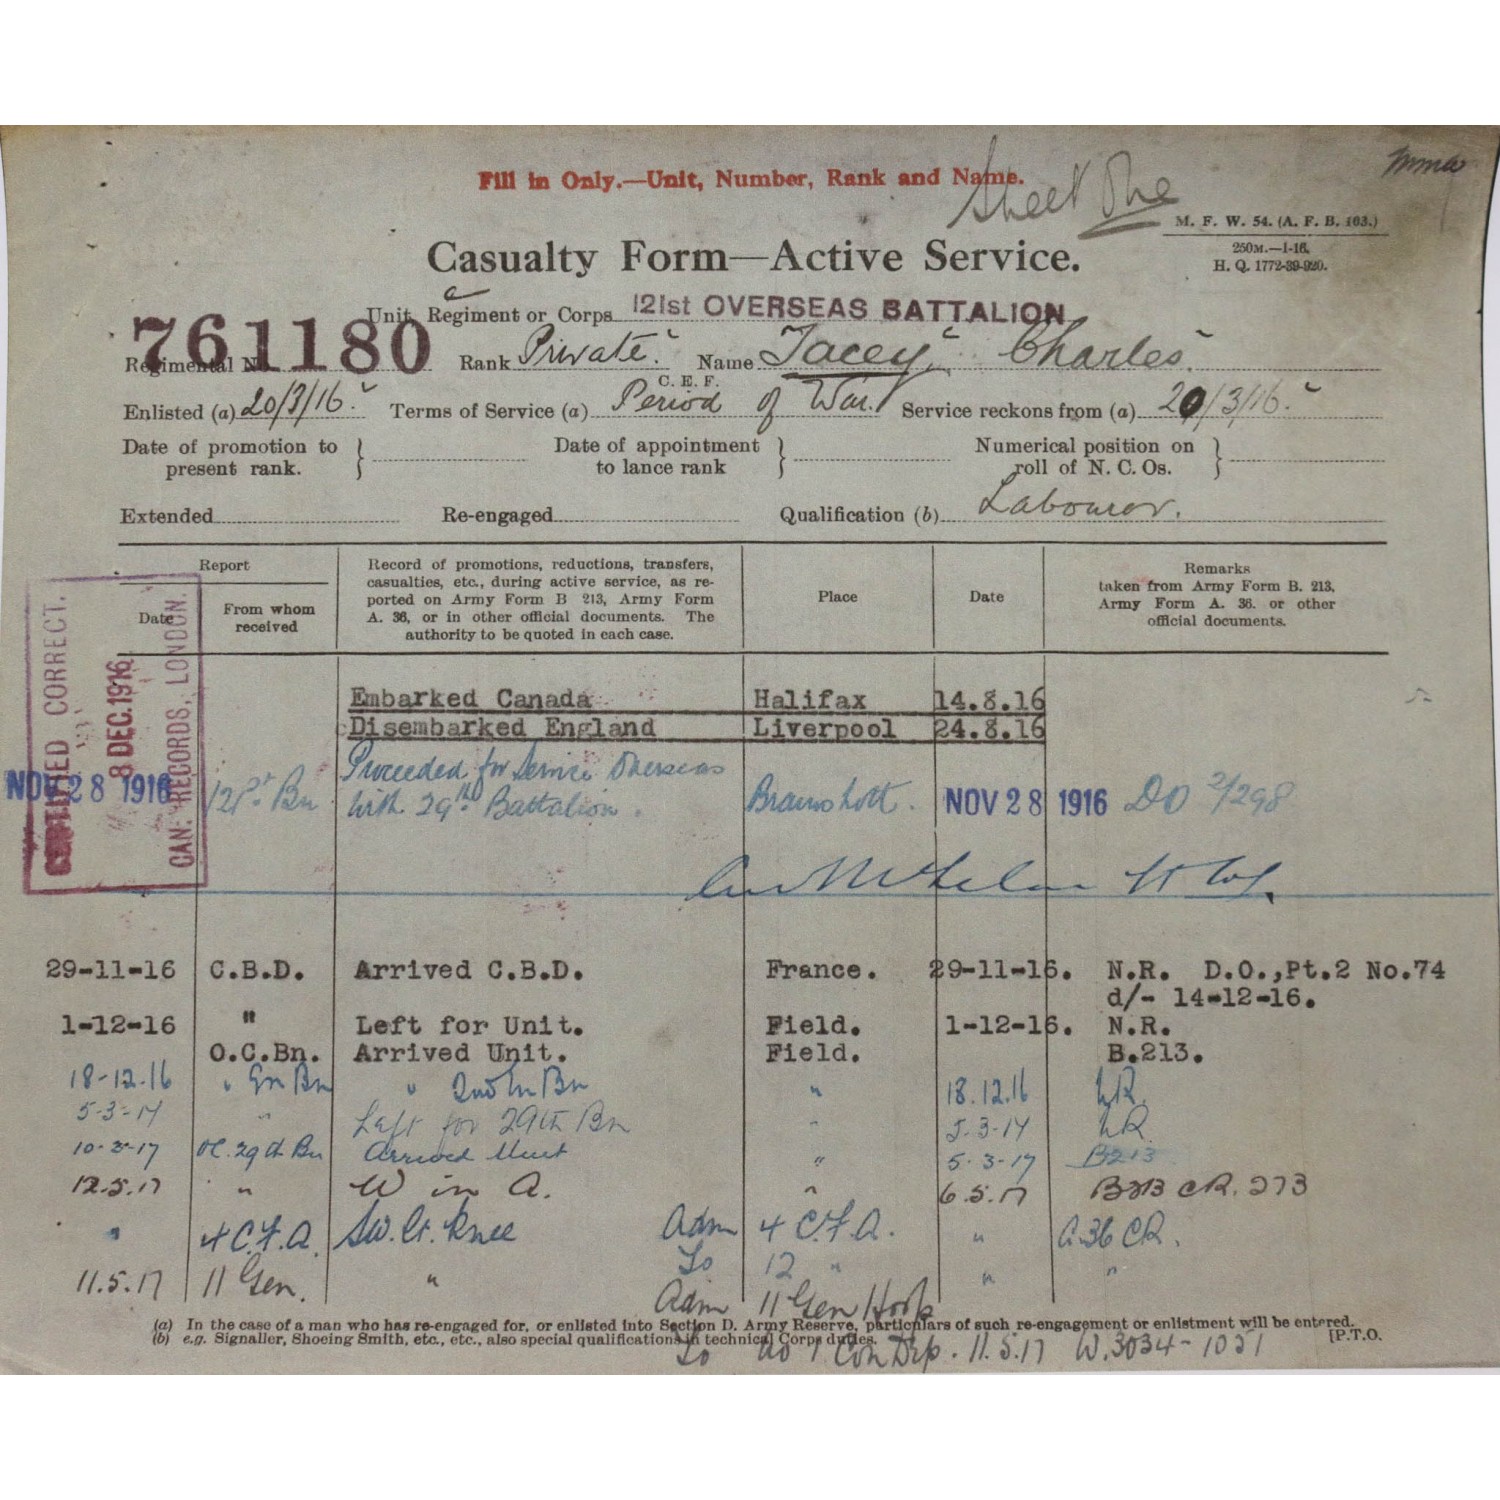 mmw
Fill in Only.—Unit, Number, Rank and Name.
Sheet One
M. F. W. 54. (A. F. B. 103.)
250M.—1-16.
H. Q. 1772-39-920.
Casualty Form—Active Service.
Unit, Regiment or Corps 121st OVERSEAS BATTALION
Regimental No 761180 Rank Private Name Tacey Charles.
C. E. F.
Enlisted (a) 20/3/16 Terms of Service (a) Period of War. Service reckons from (a) 20/3/16
Date of promotion to present rank. } Date of appointment to lance rank } Numerical position on roll of N. C. Os. }
Extended Re-engaged Qualification (b) Labourer.
Report
Date From whom received
Record of promotions, reductions, transfers, casualties, etc., during active service, as reported on Army Form B 213, Army Form A. 36, or in other official documents. The authority to be quoted in each case.
Place
Date
Remarks
taken from Army Form B. 213, Army Form A. 36. or other official documents.
CERTIFIED CORRECT.
8 DEC. 1916
CAN. RECORDS, LONDON.
Embarked Canada Halifax 14.8.16
Disembarked England Liverpool 24.8.16
NOV 28 1916 121st Bn Proceeded for Service Overseas with 29th Battalion. Bramshott. NOV 28 1916 DO 2/298
29-11-16 C.B.D. Arrived C.B.D. France. 29-11-16. N.R. D.O.,Pt.2 No.74
d/- 14-12-16.
1-12-16 " Left for Unit. Field. 1-12-16. N.R.
O.C.Bn. Arrived Unit. Field. B.213.
18-12-16 " En Bn " 2nd En Bn " 18.12.16 NR
5-3-17 " Left for 29th Bn " 5-3-17 NR
10-3-17 OC. 29th Bn Arrived Unit " 5-3-17 B213
12.5.17 " W in A. " 6.5.17 B213 CR. 273
" 4 C.F.A. SW. Lt. Knee Adm 4 C.F.A. " A.36 CR.
To 12 " " "
11.5.17 11 Gen. " Adm 11 Gen Hosp
(a) In the case of a man who has re-engaged for, or enlisted into Section D. Army Reserve, particulars of such re-engagement or enlistment will be entered.
(b) e.g. Signaller, Shoeing Smith, etc., etc., also special qualifications in technical Corps duties. [P.T.O.
To No 1 Con Dep. 11.5.17 W.3034-1051